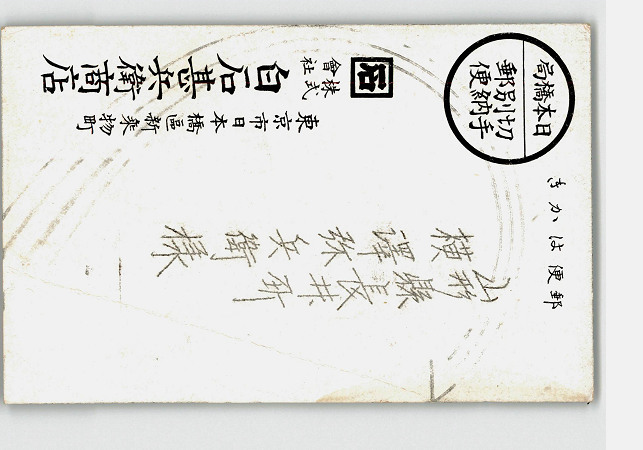 郵便はかき
日本橋局
切手別納郵便
山形縣長井
横澤弥兵衛様
東京市日本橋區新乘物町
石
株式會社
白石甚兵衛商店